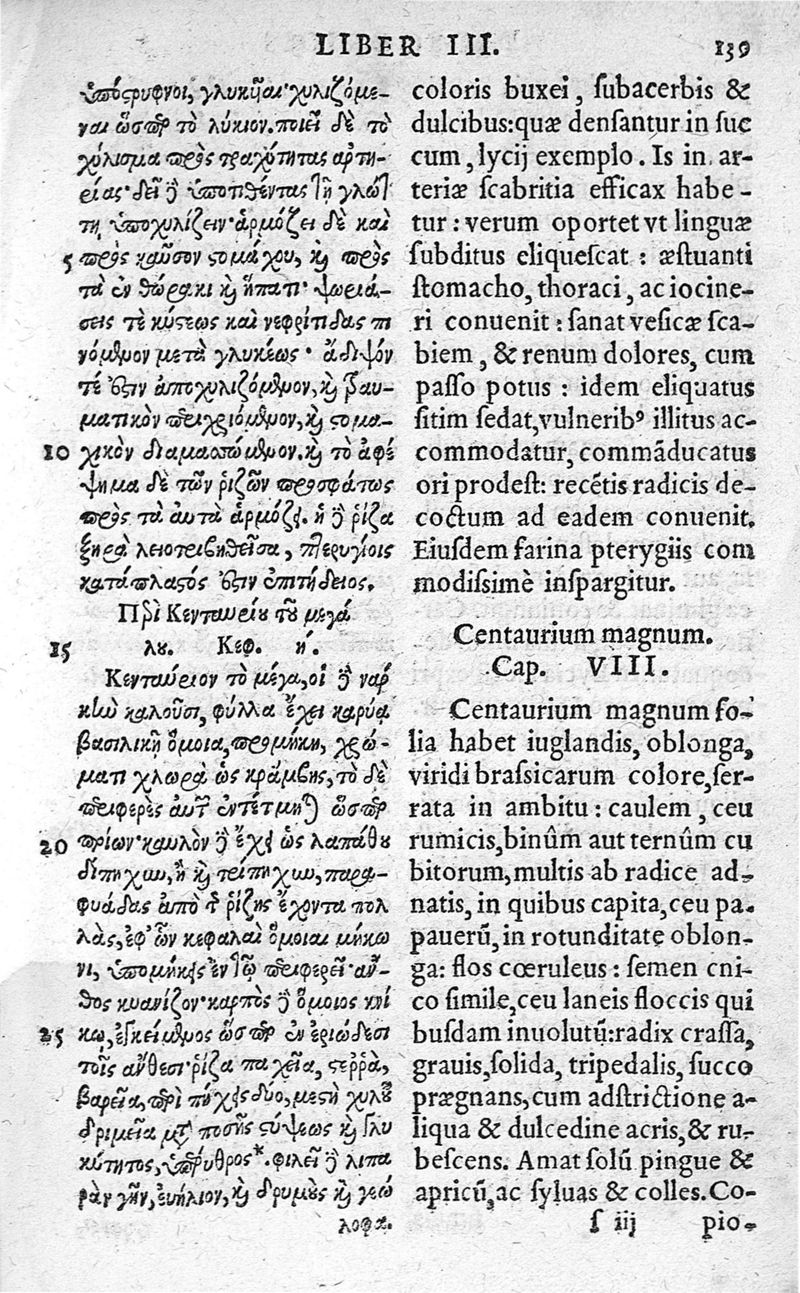 LIBER III. 139
ὑπόστρυφνοι, γλυκεῖαι· χυλιζόμε-
ναι ὥσπερ τὸ λύκιον. ποιεῖ δὲ τὸ
χύλισμα πρὸς τραχύτητας ἀρτη-
ρίας· δεῖ δὲ ὑποτιθέντας τῇ γλώτ
τῃ ὑποχυλίζειν· ἁρμόζει δὲ καὶ
5 πρὸς καῦσον στομάχου, καὶ πρὸς
τὰ ἐν θώρακι καὶ ἥπατι· ψωριά-
σεις τὲ κύστεως καὶ νεφρίτιδας πι
νόμενον μετὰ γλυκέως· ἄδιψόν
τέ ἐστιν ἀποχυλιζόμενον, καὶ τραυ-
ματικὸν περιχριόμενον, καὶ στομα-
10 χικὸν διαμασώμενον. καὶ τὸ ἀφέ
ψημα δὲ τῶν ῥιζῶν προσφάτως
πρὸς τὰ αυτὰ ἁρμόζει. ἡ δὲ ῥίζα
ξηρὰ λειοτριβηθεῖσα, πτερυγίοις
κατάπλαστός ἐστιν ἐπιτήδειος.
Περὶ Κενταυρίου τοῦ μεγά
15 λου. Κεφ. ή.
Κενταύριον τὸ μέγα, οἱ δὲ ναρ
κὴν καλοῦσι, φύλλα ἔχει καρύᾳ
βασιλικῇ ὅμοια, προμήκη, χρώ-
ματι χλωρὰ ὡς κράμβης, τὸ δὲ
περιφερὲς αὐτῶν ἐντέτμηται ὥσπερ
20 πρίων· καυλὸν δὲ ἔχει ὡς λαπάθου
δίπηχυν, ἢ καὶ τρίπηχυν, παρα-
φυάδας ἀπὸ τῆς ῥίζης ἔχοντα πολ
λὰς, ἐφ' ὧν κεφαλαὶ ὅμοιαι μήκω
νι, ὑπομήκεις ἐν τῷ περιφερεῖ· ἄν-
θος κυανίζον· καρπὸς δὲ ὅμοιος κνί
25 κῳ, ἐγκείμενος ὥσπερ ἐν ἐριώδεσι
τοῖς ἄνθεσι· ῥίζα παχεῖα, στερρὰ,
βαρεῖα, περὶ πήχεις δύο, μεστὴ χυλοῦ
δριμεῖα μετὰ ποσῆς στύψεως καὶ γλυ
κύτητος, ὑπέρυθρος*. φιλεῖ δὲ λιπα
ρὰν γῆν, εὐήλιον, καὶ δρυμοὺς καὶ γεω
λοφα.
coloris buxei, subacerbis &
dulcibus: quæ densantur in suc
cum, lycij exemplo. Is in ar-
teriæ scabritia efficax habe-
tur: verum oportet vt linguæ
subditus eliquescat: æstuanti
stomacho, thoraci, ac iocine-
ri conuenit: sanat vesicæ sca-
biem, & renum dolores, cum
passo potus: idem eliquatus
sitim sedat, vulneribꝰ illitus ac-
commodatur, commãducatus
ori prodest: recẽtis radicis de-
coctum ad eadem conuenit.
Eiusdem farina pterygiis com
modissimè inspargitur.
Centaurium magnum.
Cap. VIII.
Centaurium magnum fo-
lia habet iuglandis, oblonga,
viridi brassicarum colore, ser-
rata in ambitu: caulem, ceu
rumicis, binûm aut ternûm cu
bitorum, multis ab radice ad-
natis, in quibus capita, ceu pa-
pauerũ, in rotunditate oblon-
ga: flos cœruleus: semen cni-
co simile, ceu laneis floccis qui
busdam inuolutũ: radix crassa,
grauis, solida, tripedalis, succo
prægnans, cum adstrictione a-
liqua & dulcedine acris, & ru-
bescens. Amat solũ pingue &
apricũ, ac syluas & colles. Co-
s iij pio-